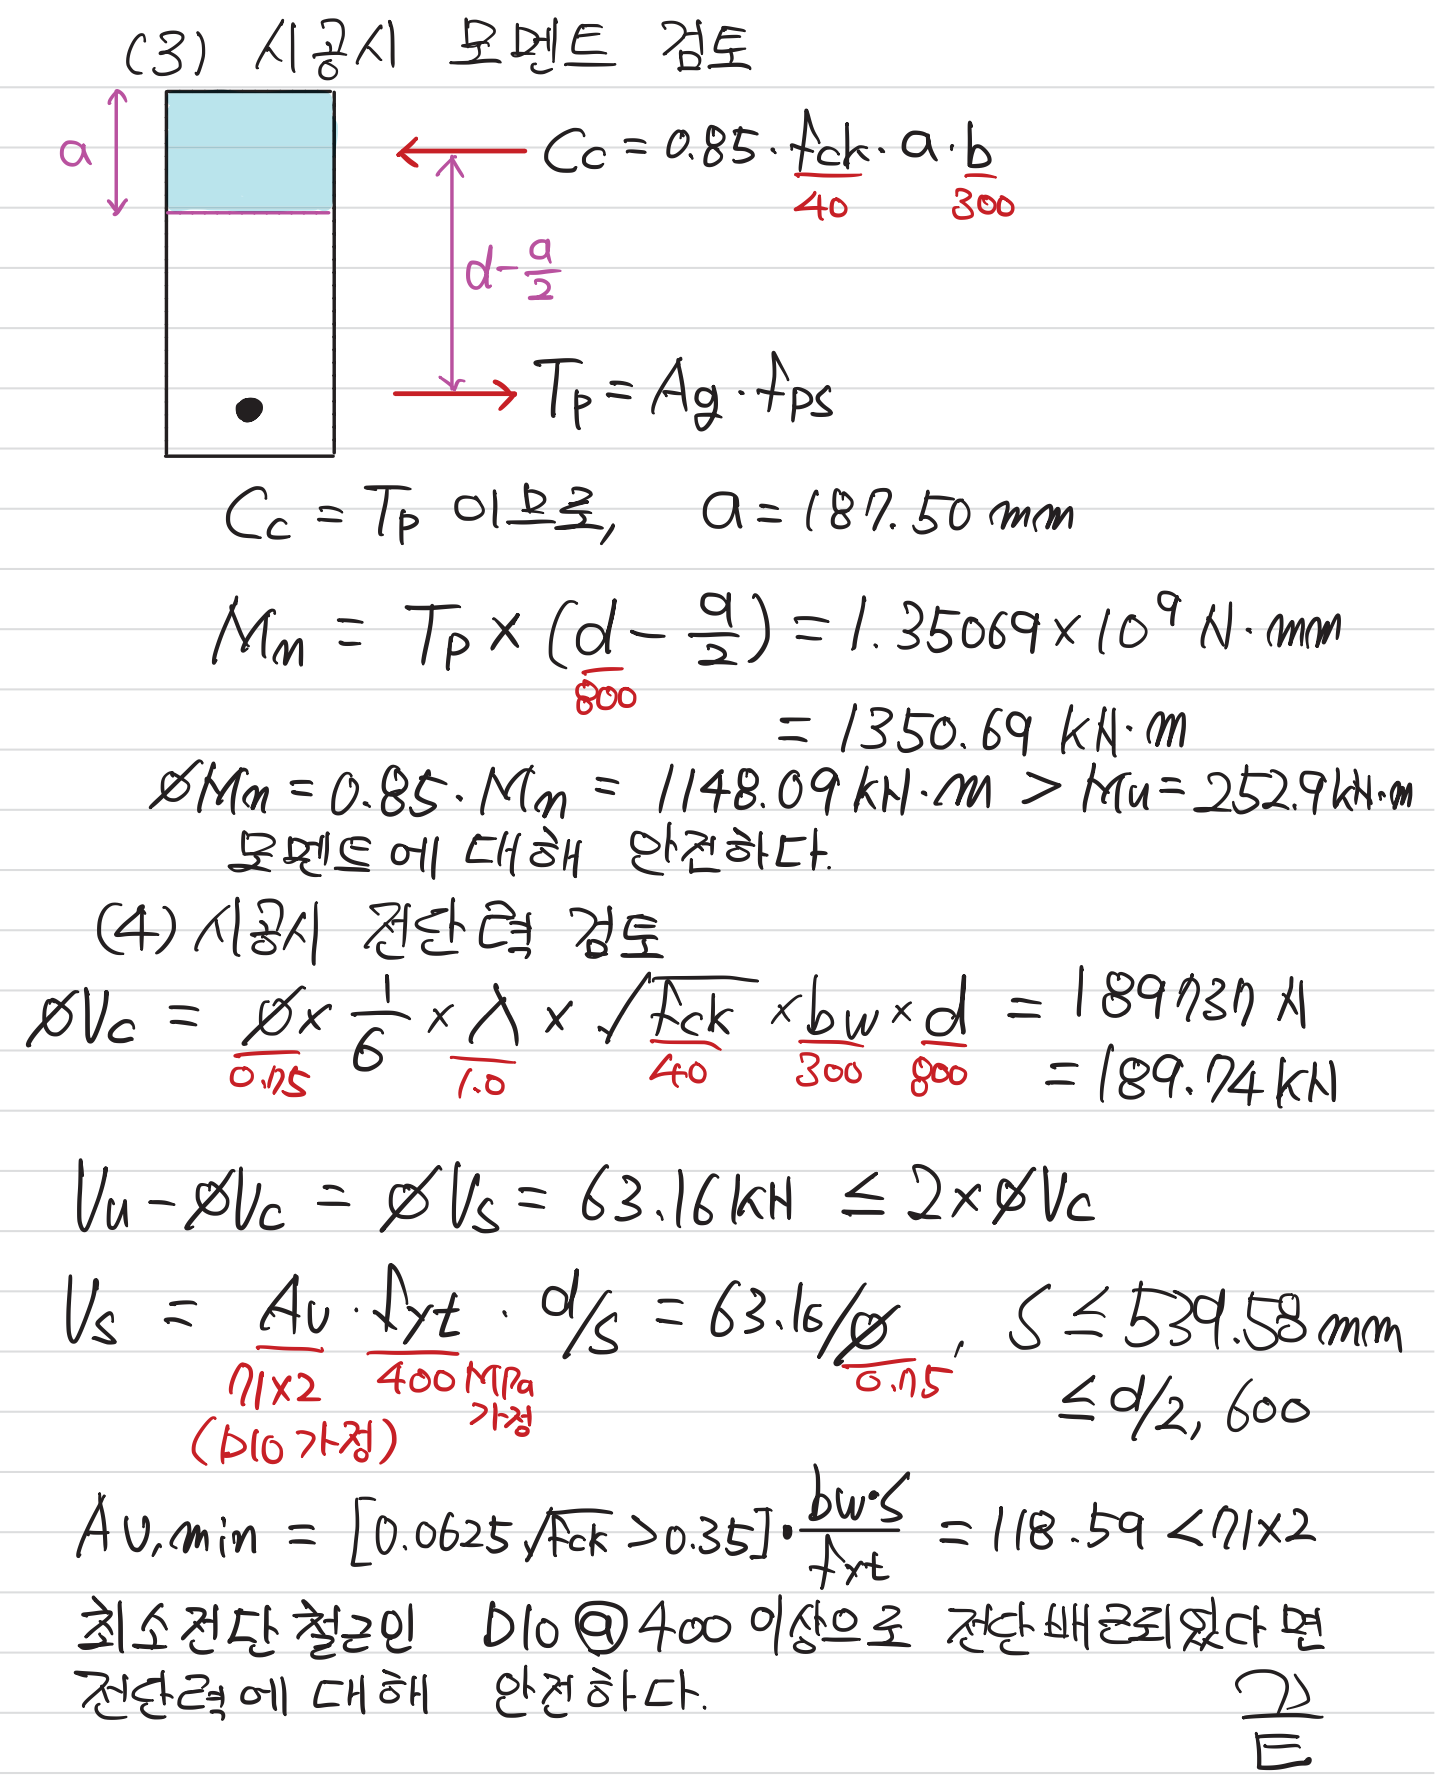 (3) 시공시 모멘트 검토
a
Cc = 0.85 · fck · a · b
40 300
d - a/2
Tp = Ag · fps
Cc = Tp 이므로, a = 187.50 mm
Mn = Tp × (d - a/2) = 1.35069 × 10⁹ N·mm
800
= 1350.69 kN·m
øMn = 0.85 · Mn = 1148.09 kN·m > Mu = 252.9 kN·m
모멘트에 대해 안전하다.
(4) 시공시 전단력 검토
øVc = ø × 1/6 × λ × √fck × bw × d = 189737 N
0.75 1.0 40 300 800
= 189.74 kN
Vu - øVc = øVs = 63.16 kN ≤ 2 × øVc
Vs = Av · fyt · d/s = 63.16/ø, S ≤ 539.58 mm
71×2 400 MPa 0.75
가정
(D10 가정)
≤ d/2, 600
Av,min = [0.0625√fck > 0.35] · bw·s/fyt = 118.59 < 71×2
최소전단철근인 D10 @ 400 이상으로 전단배근되있다면
전단력에 대해 안전하다.
끝